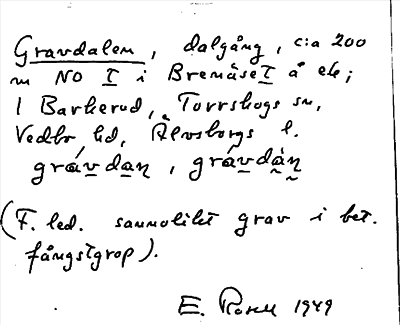 Gravdalen, dalgång, c:a 200
m NO I i Bremåset å ek;
1 Barkerud, Torrskogs sn,
Vedbo hd, Älvsborgs l.
grávdaṇ, grávdàṇ
(F. led. sannolikt grav i bet.
fångstgrop).
E. 1949